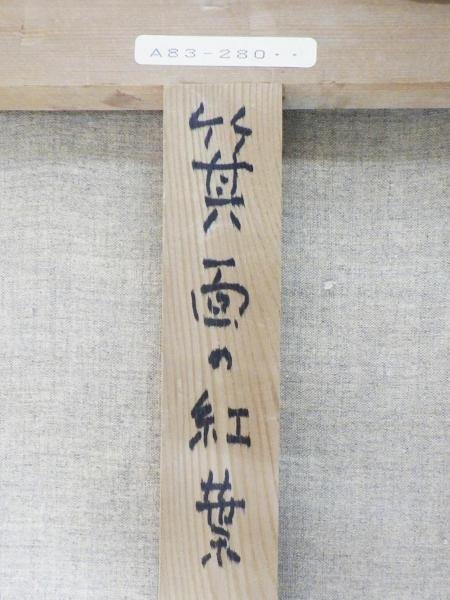 A83-280・・
箕面の紅葉